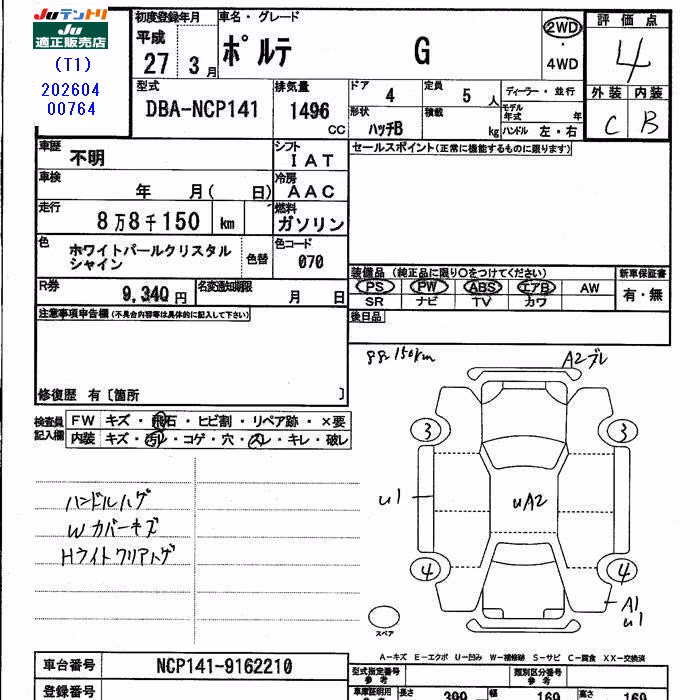 Juテントリ
Ju
適正販売店
(T1)
202604
00764
初度登録年月
平成
27 3月
車名・グレード
ポルテ G
2WD
・
4WD
評価点
4
外装 内装
C B
型式
DBA-NCP141
排気量
1496
CC
ドア 4
定員 5 人
形状 ハッチB
積載 kg
ディーラー・並行
モデル年式 年
ハンドル 左・右
車歴
不明
シフト
IAT
車検
年 月( 日)
冷房
AAC
走行
8万8千150 km
燃料
ガソリン
色
ホワイトパールクリスタル
シャイン
色替
色コード
070
R券
9,340円
名変通知期限
月 日
セールスポイント(正常に機能するものに限ります)
装備品 (純正品に限り○をつけてください)
新車保証書
PS PW ABS エアB AW
SR ナビ TV カワ
有・無
後日品
注意事項申告欄(不具合内容等は具体的に記入して下さい)
修復歴 有〔箇所 〕
検査員
記入欄
FW キズ・飛石・ヒビ割・リペア跡・×要
内装 キズ・汚レ・コゲ・穴・スレ・キレ・破レ
ハンドルハゲ
Wカバーキズ
Hライトクリアハゲ
88,150km
A2ブレ
3 3
u1
uA2
4 4
A1
u1
スペア
A-キズ E-エクボ U-凹み W-補修跡 S-サビ C-腐食 XX-交換済
車台番号
NCP141-9162210
登録番号
型式指定番号
参考
類別区分番号
参考
車庫証明用
参考
長さ 399 幅 169 高さ 169